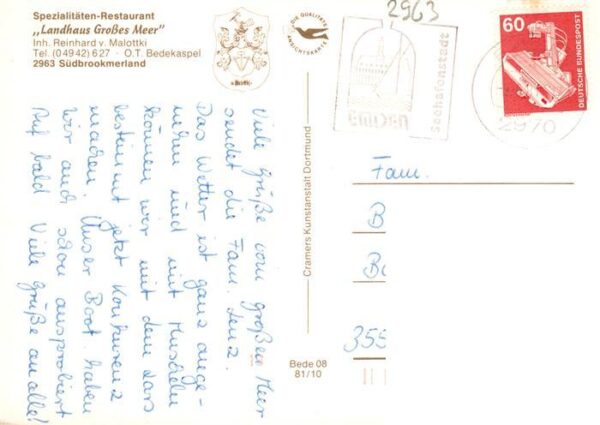 Spezialitäten-Restaurant
„Landhaus Großes Meer"
Inh. Reinhard v. Malottki
Tel. (0 49 42) 627 · O.T. Bedekaspel
2963 Südbrookmerland
DIE QUALITÄTS
ANSICHTSKARTE
2963
Emden
Seehafenstadt
60
DEUTSCHE BUNDESPOST
2970
Viele Grüße vom großen Meer
sendet die Fam. Lenz.
Das Wetter ist ganz ange-
nehm und mit Muscheln
können wir mit dem Lars
bestimmt jetzt Konkurenz
machen. Unser Boot haben
wir auch schon ausprobiert
Auf bald Viele Grüße an alle!
Cramers Kunstanstalt Dortmund
Bede 08
81/10
Fam.
B
355